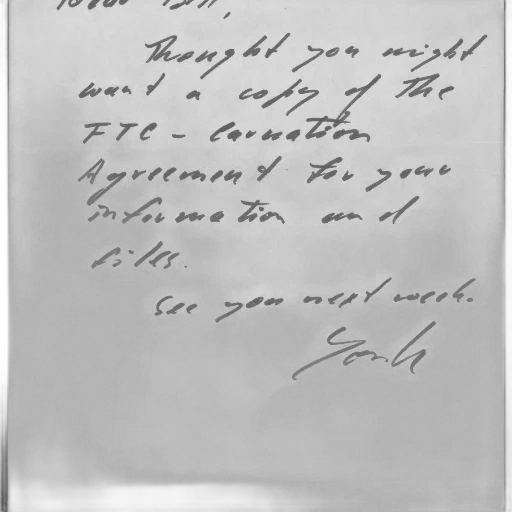 Thought you might
want a copy of the
FTC - Carnation
Agreement for your
information and
files.
See you next week.
York